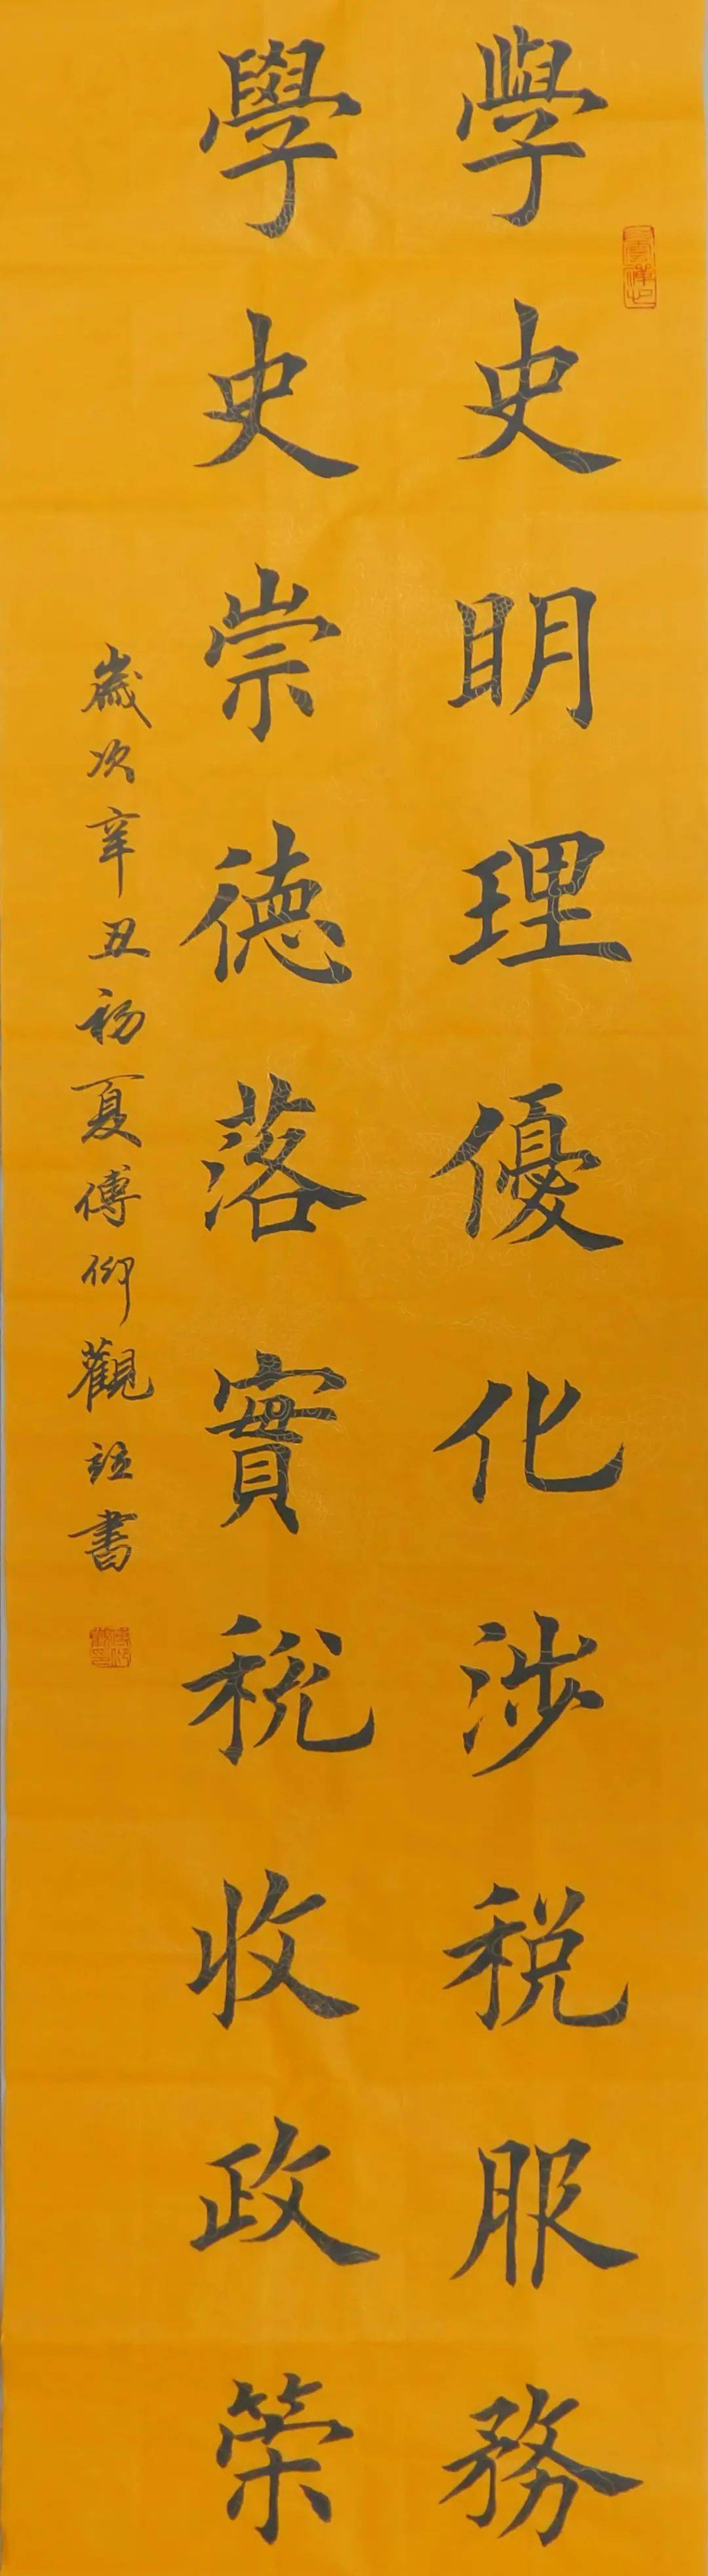 學史明理優化涉税服務
學史崇德落實税收政策
歲次辛丑初夏傅仰觀書